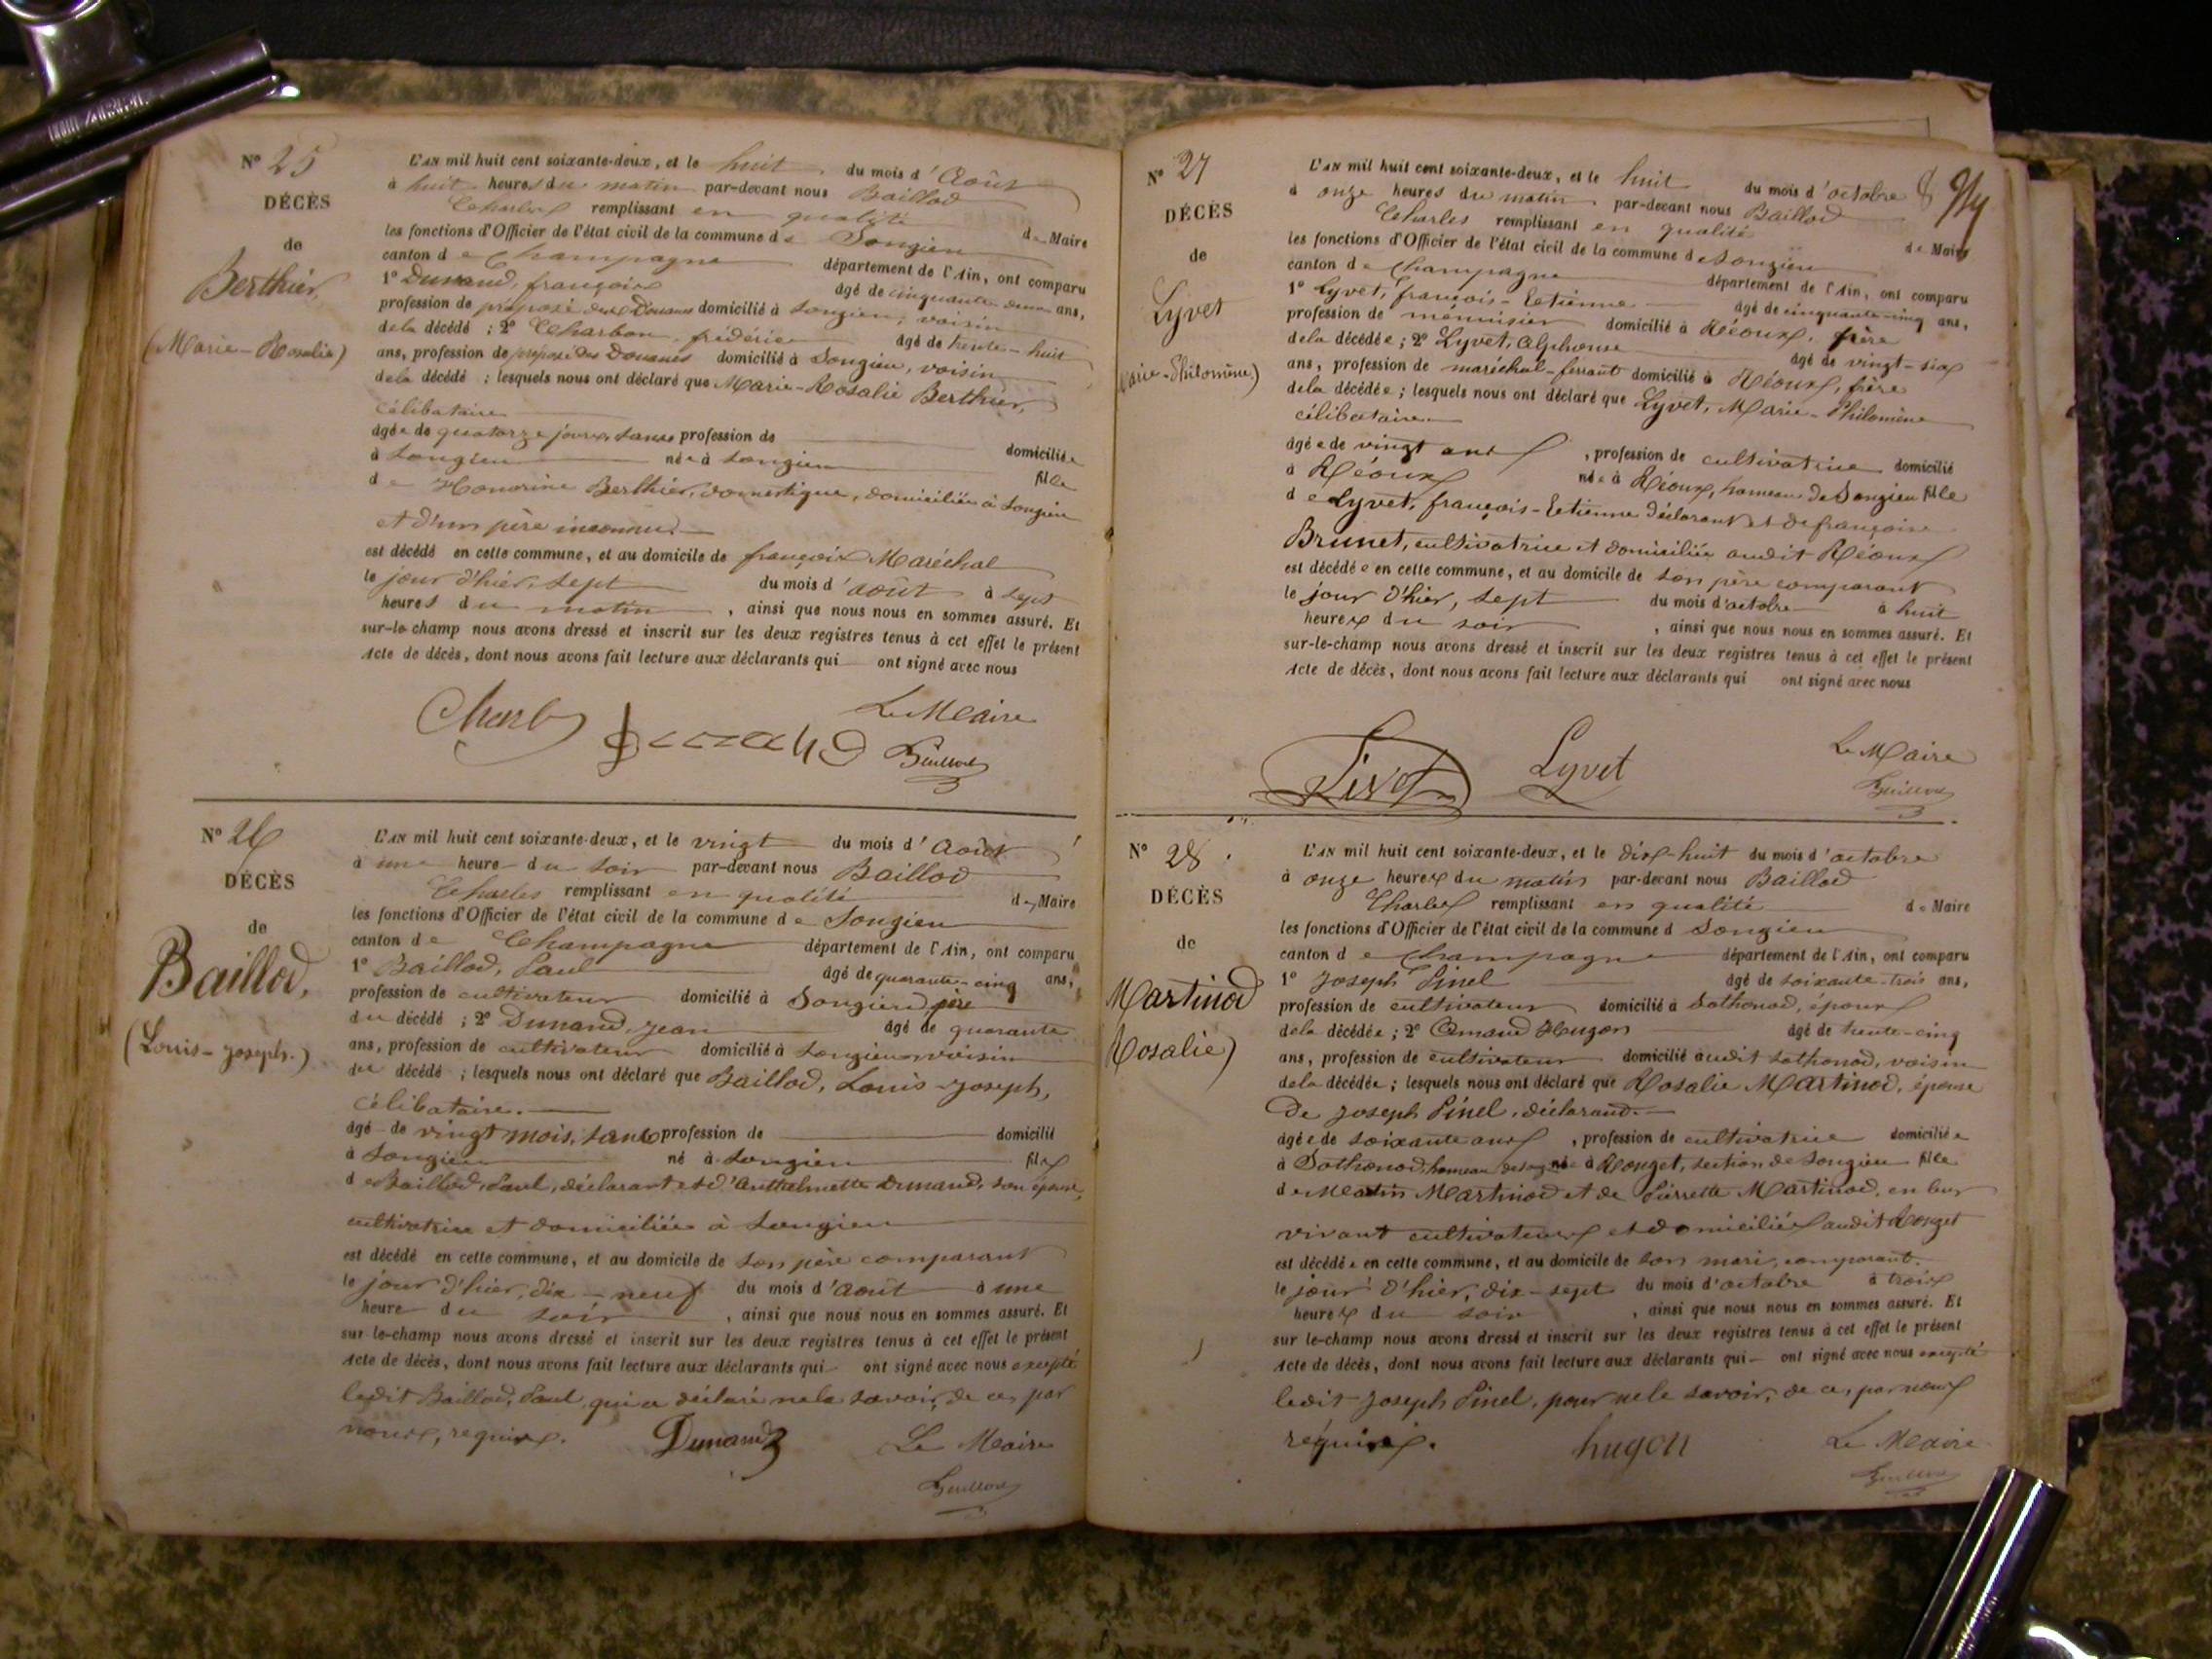 N° 25
DÉCÈS
de
Berthier,
(Marie-Rosalie)
L'AN mil huit cent soixante-deux, et le huit du mois d'Août
à huit heures du matin par-devant nous Baillod
Charles remplissant en qualité de Maire
les fonctions d'Officier de l'état civil de la commune de Songieu
canton de Champagne département de l'Ain, ont comparu
1° Dunand, françois âgé de cinquante deux ans,
profession de préposé des Douanes domicilié à Songieu, voisin
de la décédé ; 2° Charbon, frédéric âgé de trente-huit
ans, profession de préposé des Douanes domicilié à Songieu, voisin
de la décédé ; lesquels nous ont déclaré que Marie-Rosalie Berthier,
célibataire
âgée de quatorze jours, sans profession de domiciliée
à Songieu née à Songieu fille
de Honorine Berthier, domestique, domiciliée à Songieu
et d'un père inconnu.
est décédé en cette commune, et au domicile de françois Maréchal
le jour d'hier, sept du mois d'août à sept
heures du matin, ainsi que nous nous en sommes assuré. Et
sur-le-champ nous avons dressé et inscrit sur les deux registres tenus à cet effet le présent
Acte de décès, dont nous avons fait lecture aux déclarants qui ont signé avec nous
Le Maire
Baillod
N° 26
DÉCÈS
de
Baillod,
(Louis-Joseph.)
L'AN mil huit cent soixante-deux, et le vingt du mois d'Août
à une heure du soir par-devant nous Baillod
Charles remplissant en qualité de Maire
les fonctions d'Officier de l'état civil de la commune de Songieu
canton de Champagne département de l'Ain, ont comparu
1° Baillod, Paul âgé de quarante-cinq ans,
profession de cultivateur domicilié à Songieu, père
du décédé ; 2° Dunand, Jean âgé de quarante
ans, profession de cultivateur domicilié à Songieu, voisin
du décédé ; lesquels nous ont déclaré que Baillod, Louis-Joseph,
célibataire.
âgé de vingt mois, sans profession de domicilié
à Songieu né à Songieu fils
de Baillod, Paul, déclarant et d'Anthelmette Dunand, son épouse,
cultivatrice et domiciliée à Songieu
est décédé en cette commune, et au domicile de son père comparant
le jour d'hier, dix-neuf du mois d'août à une
heure du soir, ainsi que nous nous en sommes assuré. Et
sur-le-champ nous avons dressé et inscrit sur les deux registres tenus à cet effet le présent
Acte de décès, dont nous avons fait lecture aux déclarants qui ont signé avec nous excepté
ledit Baillod, Paul, qui a déclaré ne la savoir, de ce, par
nous, requis.
Dunand Le Maire
Baillod
N° 27
DÉCÈS
de
Lyvet
Marie-Philomène)
L'AN mil huit cent soixante-deux, et le huit du mois d'octobre
à onze heures du matin par-devant nous Baillod
Charles remplissant en qualité de Maire
les fonctions d'Officier de l'état civil de la commune de Songieu
canton de Champagne département de l'Ain, ont comparu
1° Lyvet, françois-Etienne âgé de cinquante-cinq ans,
profession de menuisier domicilié à Réoux, père
de la décédée ; 2° Lyvet, Alphonse âgé de vingt-six
ans, profession de maréchal-ferrant domicilié à Réoux, frère
de la décédée ; lesquels nous ont déclaré que Lyvet, Marie-Philomène
célibataire
âgée de vingt ans, profession de cultivatrice domicilié
à Réoux née à Réoux, hameau de Songieu fille
de Lyvet, françois-Etienne déclarant et de françoise
Brunet, cultivatrice et domiciliée audit Réoux
est décédée en cette commune, et au domicile de son père comparant
le jour d'hier, sept du mois d'octobre à huit
heures du soir, ainsi que nous nous en sommes assuré. Et
sur-le-champ nous avons dressé et inscrit sur les deux registres tenus à cet effet le présent
Acte de décès, dont nous avons fait lecture aux déclarants qui ont signé avec nous
Livet Lyvet Le Maire
Baillod
N° 28
DÉCÈS
de
Martinod
Rosalie)
L'AN mil huit cent soixante-deux, et le dix-huit du mois d'octobre
à onze heures du matin par-devant nous Baillod
Charles remplissant en qualité de Maire
les fonctions d'Officier de l'état civil de la commune d Songieu
canton de Champagne département de l'Ain, ont comparu
1° Joseph Pinel âgé de soixante-trois ans,
profession de cultivateur domicilié à Sothonod, époux
de la décédée ; 2° Armand Hugon âgé de trente-cinq
ans, profession de cultivateur domicilié audit Sothonod, voisin
de la décédée ; lesquels nous ont déclaré que Rosalie Martinod, épouse
de Joseph Pinel, déclarant.
âgée de soixante ans, profession de cultivatrice domiciliée
à Sothonod, hameau de née à Rouget, section de Songieu fille
de Martin Martinod et de Pierrette Martinod, en leur
vivant cultivateurs et domiciliés audit Rouget
est décédée en cette commune, et au domicile de son mari, comparant.
le jour d'hier, dix-sept du mois d'octobre à trois
heures du soir, ainsi que nous nous en sommes assuré. Et
sur le-champ nous avons dressé et inscrit sur les deux registres tenus à cet effet le présent
Acte de décès, dont nous avons fait lecture aux déclarants qui ont signé avec nous excepté
ledit Joseph Pinel, pour ne le savoir, de ce, par nous
requis.
hugon Le Maire
Baillod